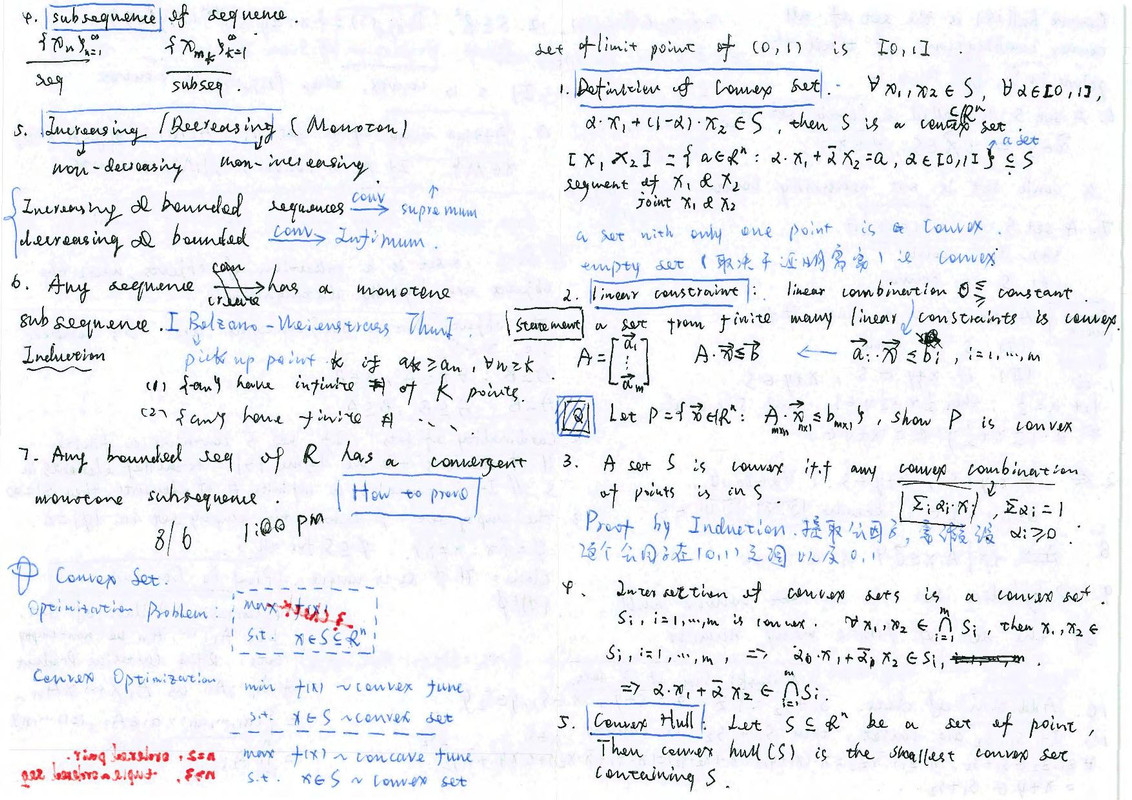 4. subsequence of sequence
{xn}∞k=1 {xnk}∞k=1
seq subseq.
5. Increasing / Decreasing (Monoton)
non-decreasing non-increasing
Increasing & bounded sequences conv → supremum
decreasing & bounded conv → Infimum.
6. Any sequence can create → has a monotone
subsequence. [ Bolzano-Weierstrass Thm ].
Induction pick up point k if ak ≥ an, ∀n ≥ k
(1) {an} have infinite # of K points.
(2) {an} have finite # . . . .
7. Any bounded seq of R has a convergent
monotone subsequence. How to prove
8/6 1:00 pm
Convex Set.
Optimization Problem: max f(x)
s.t. x∈S⊆Rⁿ
Convex Optimization min f(x) ~ convex func
s.t. x∈S ~ convex set
max f(x) ~ concave func
s.t. x∈S ~ convex set
n=2, ordered pair
n≥3, tuple = ordered seq
set of limit point of (0,1) is [0,1]
1. Definition of Convex set. - ∀x1, x2 ∈ S, ∀α∈[0,1],
⊆Rⁿ
α·x1+(1-α)·x2 ∈ S, then S is a convex set.
a set
[x1, x2] = {a∈Rⁿ: α·x1+ᾱx2=a, α∈[0,1]} ⊆ S
segment of x1 & x2
joint x1 & x2
a set with only one point is a convex.
empty set is convex
2. linear constraint: linear combination ≤ = ≥ constant.
Statement a set from finite many linear constraints is convex.
A = [a1 ⋮ am] A·x ≤ b ← ai·x ≤ bi, i=1,...,m
Q Let P={x∈Rⁿ: Amxn·xnx1 ≤ bmx1}, show P is convex
3. A set S is convex iff any convex combination
of points is in S
Σi αi·xi Σαi=1
Proof by Induction. 提取公因子, αi≥0.
4. Intersection of convex sets is a convex set.
Si, i=1,...,m is convex. ∀x1, x2 ∈ ∩ᵐi=1 Si then x1, x2 ∈
Si, i=1,...,m, => α·x1+ᾱx2 ∈ Si,
=> α·x1+ᾱx2 ∈ ∩ᵐi=1 Si.
5. Convex Hull: Let S⊆Rⁿ be a set of point,
Then convex hull(S) is the smallest convex set
containing S.